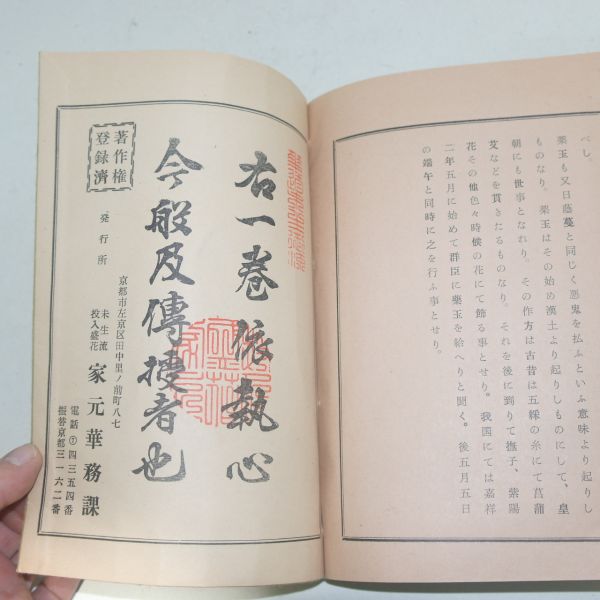 べし。
薬玉も又日蔭蔓と同じく悪鬼を払ふといふ意味より起りし
ものなり。薬玉はその始め漢土より起りしものにして、皇
朝にも世事となれり。その作方は古昔は五綵の糸にて菖蒲
艾などを貫きたるものなり。それを後に到りて撫子、紫陽
花その他色々時候の花にて飾る事とせり。我国にては嘉祥
二年五月に始めて群臣に薬玉を給へりと聞く。後五月五日
の端午と同時に之を行ふ事とせり。
右一巻依執心
今般及傳授者也
著作権
登録濟
発行所
京都市左京区田中里ノ前町八七
未生流
投入盛花
家元華務課
電話⑦四三五四番
振替京都三一六二番